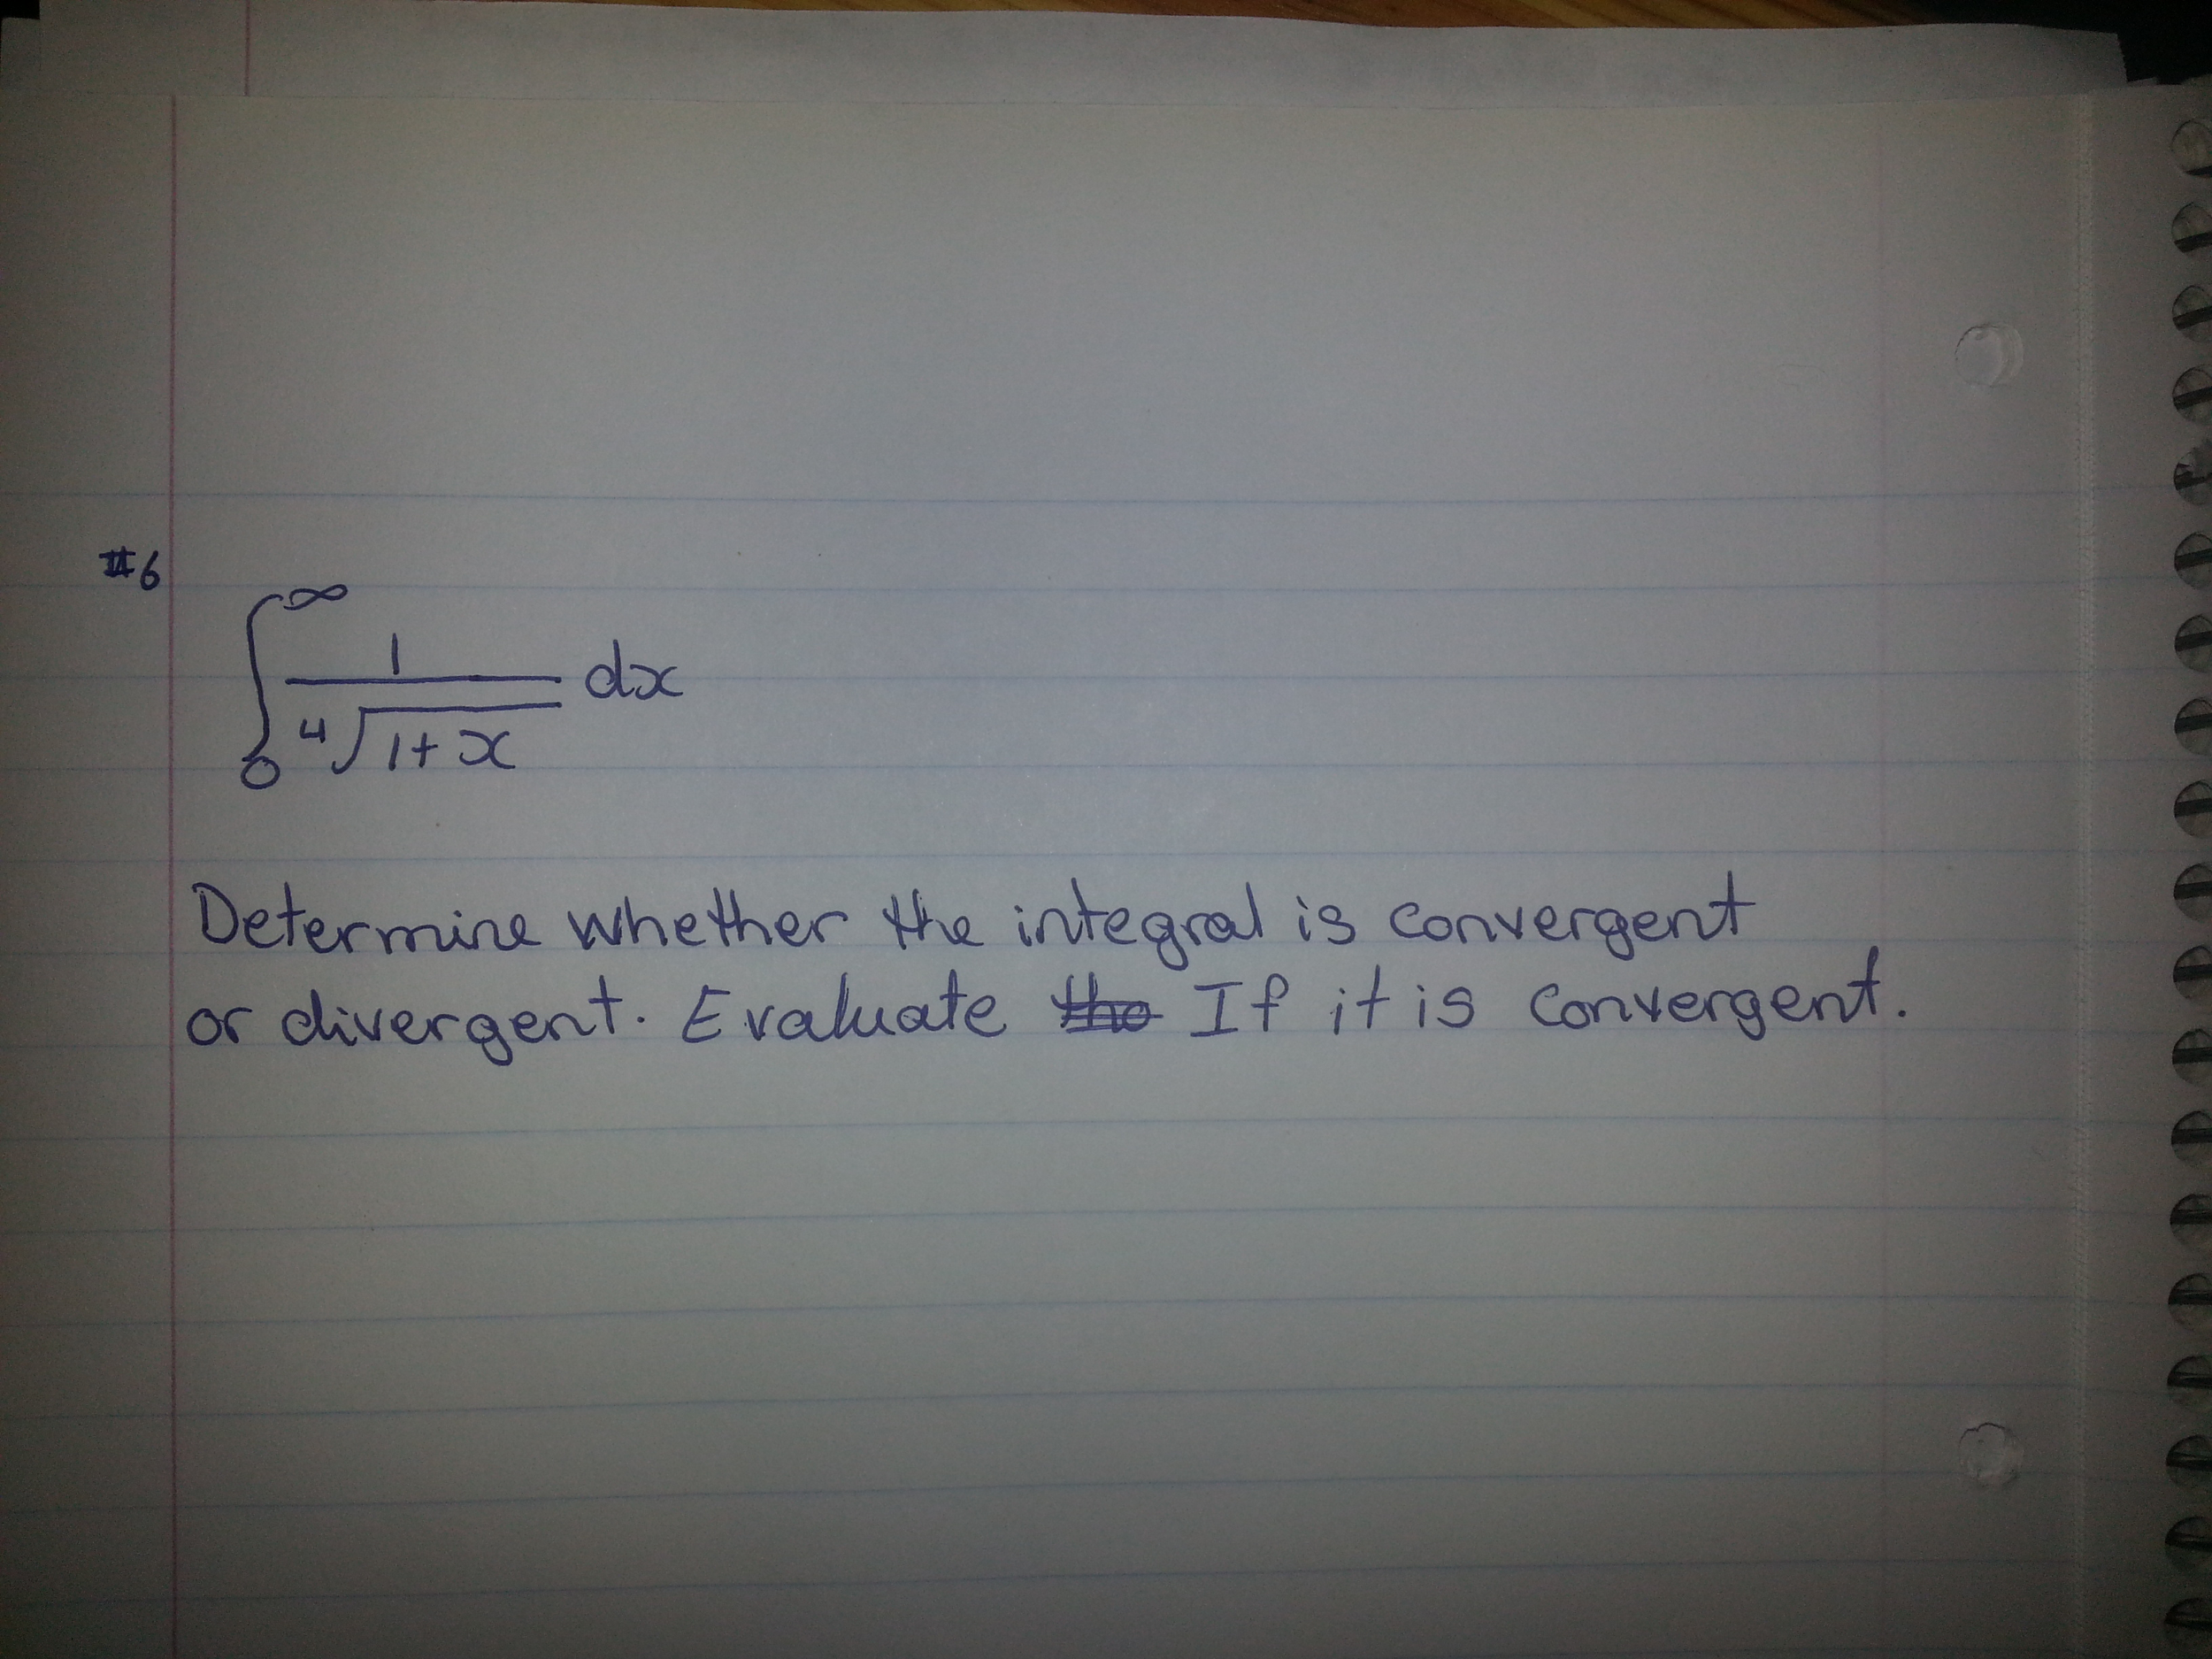 #6
∫₀^∞ 1/⁴√(1+x) dx
Determine whether the integral is convergent
or divergent. Evaluate the If it is convergent.